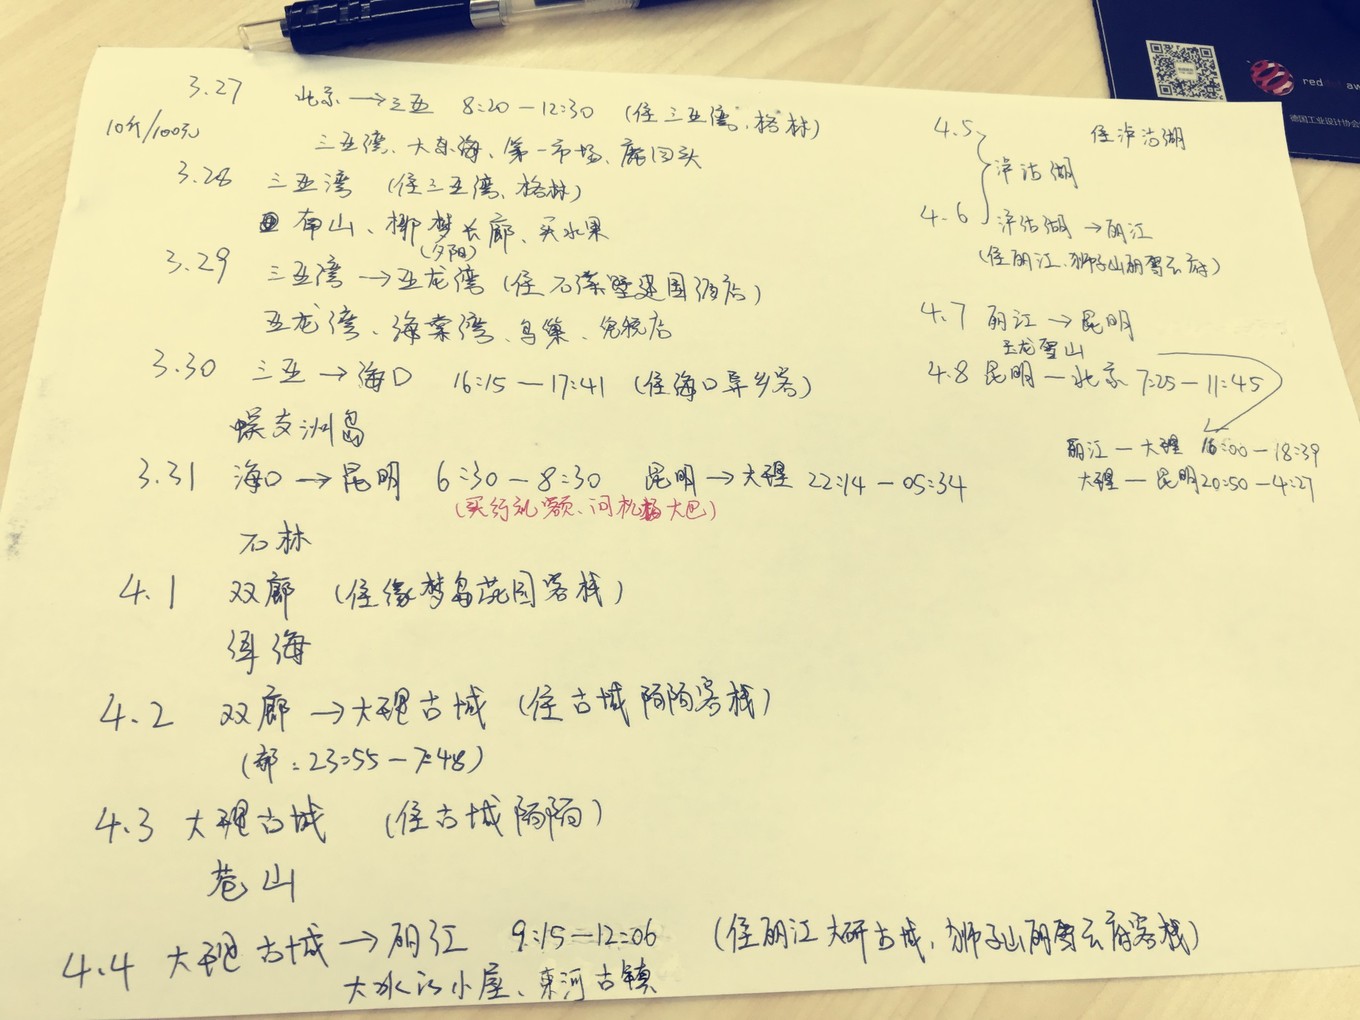 3.27 北京→三亚 8:20—12:30 (住三亚湾、格林)
10斤/100元
三亚湾、大东海、第一市场、鹿回头
3.28 三亚湾 (住三亚湾、格林)
南山、椰梦长廊、买水果
(夕阳)
3.29 三亚湾→亚龙湾 (住石溪墅建国酒店)
亚龙湾、海棠湾、鸟巢、免税店
3.30 三亚→海口 16:15—17:41 (住海口异乡客)
蜈支洲岛
3.31 海口→昆明 6:30—8:30 昆明→大理 22:14—05:34
(买行礼额、问机场大巴)
石林
4.1 双廊 (住缘梦岛花园客栈)
洱海
4.2 双廊→大理古城 (住古城陌陌客栈)
(郝:23:55—7:48)
4.3 大理古城 (住古城陌陌)
苍山
4.4 大理古城→丽江 9:15—12:06 (住丽江大研古城,狮子山丽雪云府客栈)
大冰的小屋、束河古镇
4.5 住泸沽湖
泸沽湖
4.6 泸沽湖→丽江
(住丽江、狮子山丽雪云府)
4.7 丽江→昆明
玉龙雪山
4.8 昆明—北京 7:25—11:45
丽江—大理 16:00—18:39
大理—昆明 20:50—4:27
red
德国工业设计协会